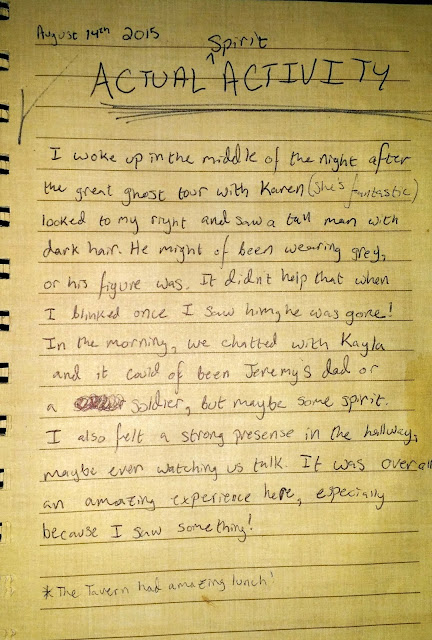 August 14th 2015
ACTUAL Spirit ACTIVITY
I woke up in the middle of the night after
the great ghost tour with Karen (she's fantastic)
looked to my right and saw a tall man with
dark hair. He might of been wearing grey,
or his figure was. It didn't help that when
I blinked once I saw him, he was gone!
In the morning, we chatted with Kayla
and it could of been Jeremy's dad or
a soldier, but maybe some spirit.
I also felt a strong presense in the hallway,
maybe even watching us talk. It was overall
an amazing experience here, especially
because I saw something!
*The Tavern had amazing lunch!